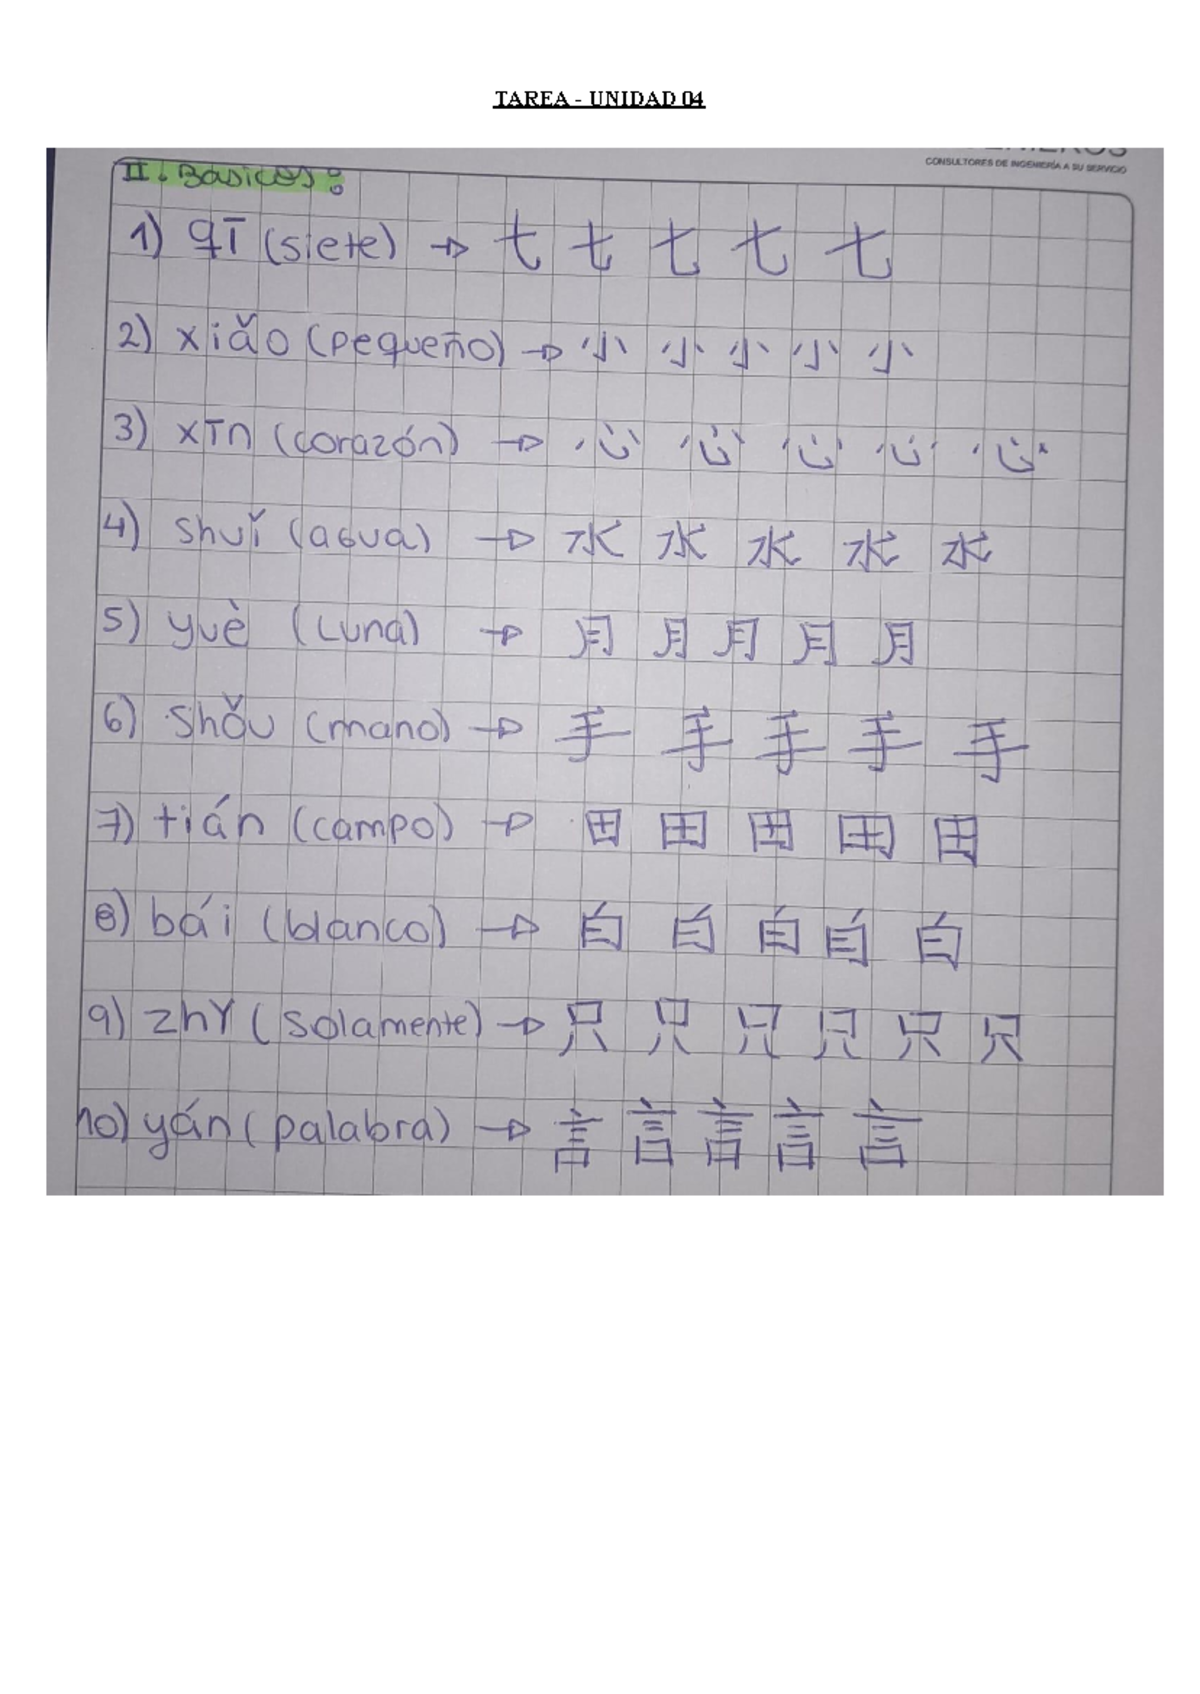 TAREA - UNIDAD 04
CONSULTORES DE INGENIERÍA A SU SERVICIO
II. Básicos:
1) qī (siete) → 七 七 七 七 七
2) xiǎo (pequeño) → 小 小 小 小 小
3) xīn (corazón) → 心 心 心 心 心
4) shuǐ (agua) → 水 水 水 水 水
5) yuè (Luna) → 月 月 月 月 月
6) shǒu (mano) → 手 手 手 手 手
7) tián (campo) → 田 田 田 田 田
8) bái (blanco) → 白 白 白 白 白
9) zhǐ (solamente) → 只 只 只 只 只 只
10) yán (palabra) → 言 言 言 言 言